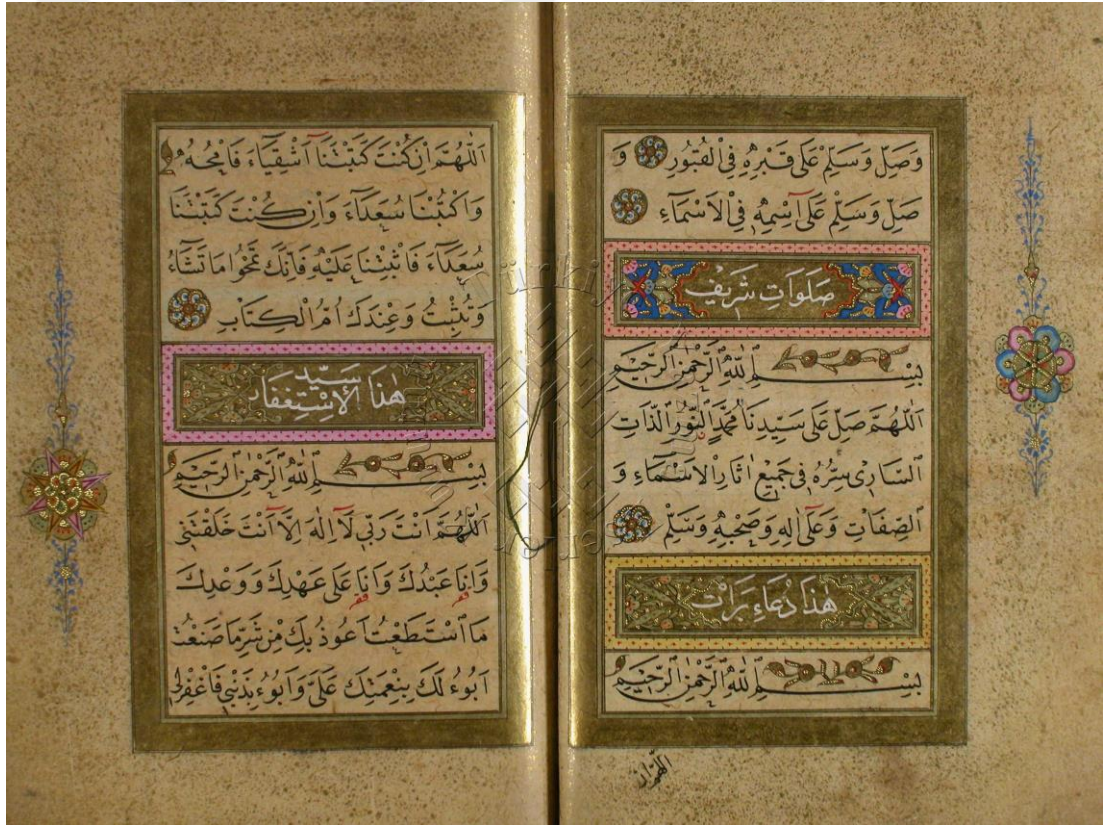 وَصَلِّ وَسَلِّمْ عَلٰى قَبْرِهٖ فِى الْقُبُورِ وَ
صَلِّ وَسَلِّمْ عَلٰٓى اِسْمِهٖ فِى الْاَسْمَٓاءِ
صلوات شريف
بِسْمِ اللّٰهِ الرَّحْمٰنِ الرَّحِيمِ
اَللّٰهُمَّ صَلِّ عَلٰى سَيِّدِنَا مُحَمَّدٍ النُّورِ الذَّاتِ
السَّارِى سِرُّهُ فِى جَمِيعِ اٰثَارِ الْاَسْمَٓاءِ وَ
الصِّفَاتِ وَعَلٰٓى اٰلِهِ وَصَحْبِهِ وَسَلِّمْ
هٰذَا دُعَاءِ بَرَاتْ
بِسْمِ اللّٰهِ الرَّحْمٰنِ الرَّحِيمِ
اللهم ان
اَللّٰهُمَّ اِنْ كُنْتَ كَتَبْتَنَٓا اَشْقِيَٓاءَ فَامْحُهُ
وَاكْتُبْنَا سُعَدَٓاءَ وَاِنْ كُنْتَ كَتَبْتَنَا
سُعَدَٓاءَ فَاثْبِتْنَا عَلَيْهِ فَاِنَّكَ تَمْحُوا مَا تَشَٓاءُ
وَتُثْبِتُ وَعِنْدَكَ اُمُّ الْكِتَابِ
هٰذَا سَيِّدُ الْاِسْتِغْفَار
بِسْمِ اللّٰهِ الرَّحْمٰنِ الرَّحِيمِ
اَللّٰهُمَّ اَنْتَ رَبِّى لَٓا اِلٰهَ اِلَّٓا اَنْتَ خَلَقْتَنِى
وَاَنَا عَبْدُكَ وَاَنَا عَلٰى عَهْدِكَ وَوَعْدِكَ
مَا اسْتَطَعْتُ اَعُوذُ بِكَ مِنْ شَرِّ مَا صَنَعْتُ
اَبُوءُ لَكَ بِنِعْمَتِكَ عَلَىَّ وَاَبُوءُ بِذَنْبِى فَاغْفِرْلِى